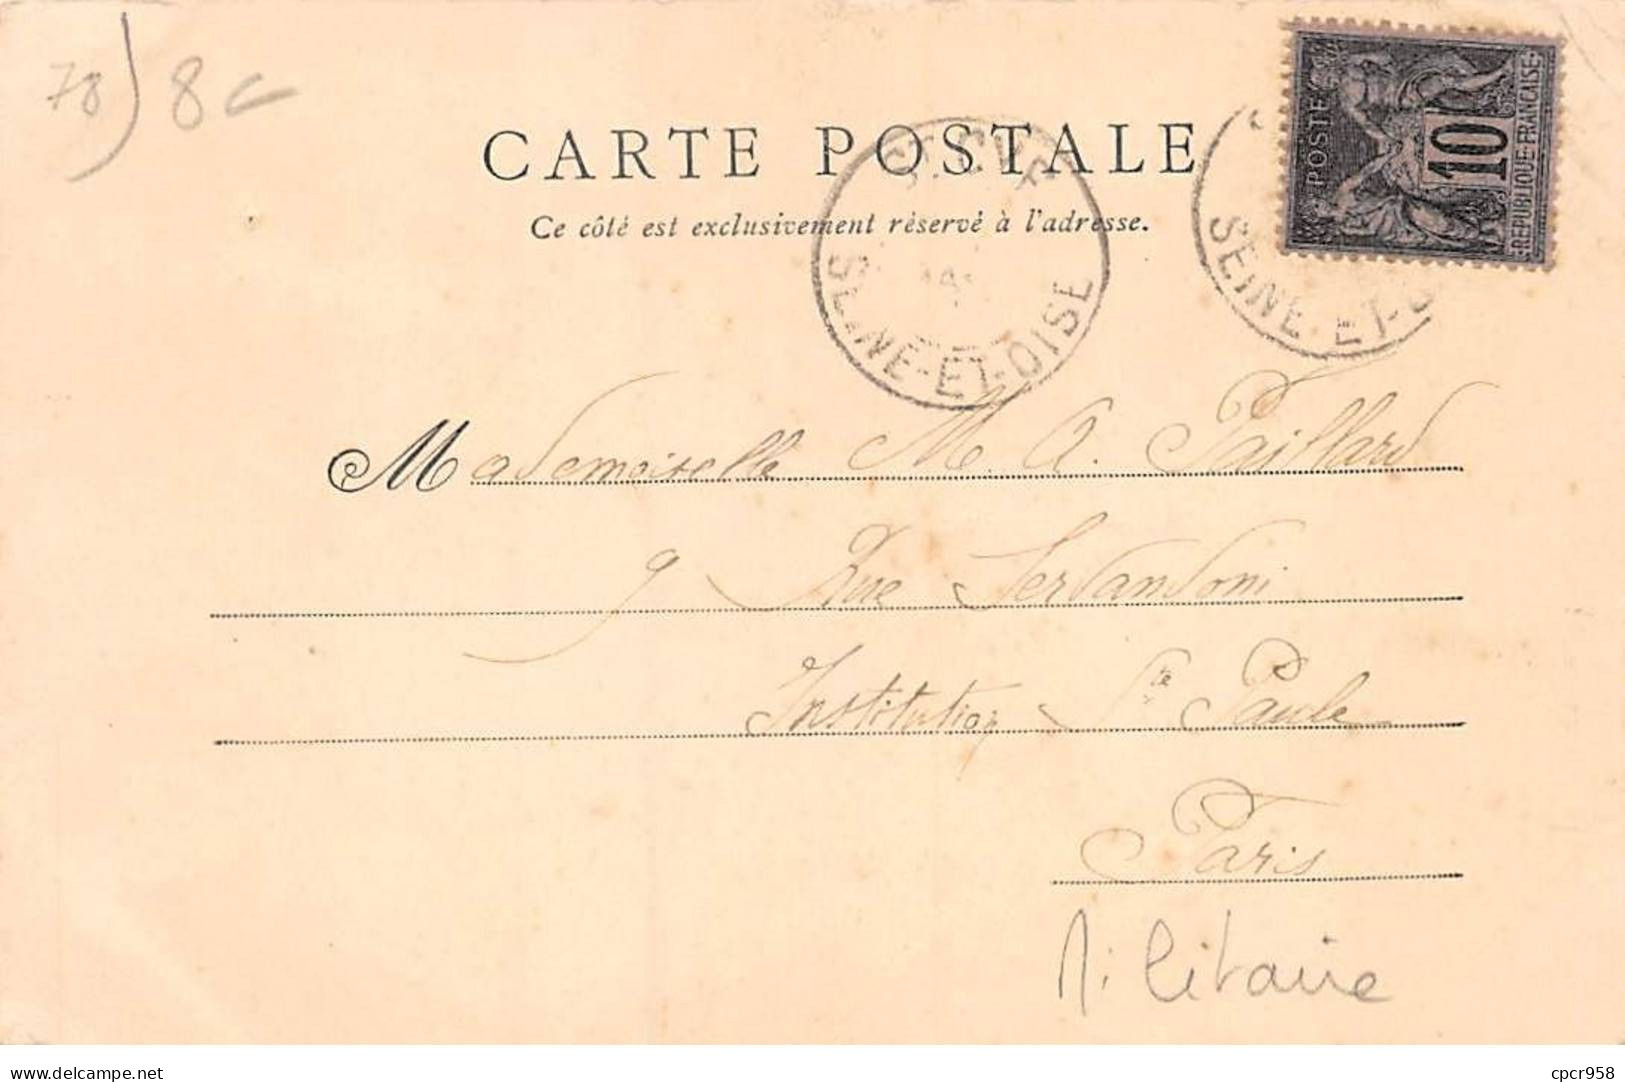 78) 8c
POSTES
10
REPUBLIQUE FRANÇAISE
CARTE POSTALE
Ce côté est exclusivement réservé à l'adresse.
ST CYR
SEINE-ET-OISE
SEINE-ET-O
Mademoiselle M. A. Paillard
9 Rue Servandoni
Institution Ste Paule
Paris
Militaire
www.delcampe.net
cpcr958